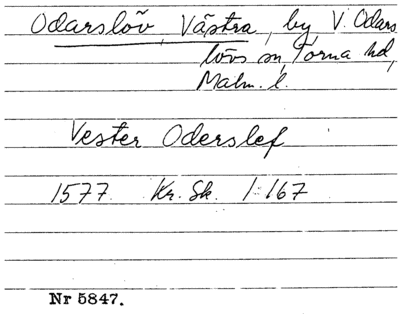 Odarslöv, Västra, by, V. Odars
lövs sn, Torna hd,
Malm. l.
Vester Oderslef
1577 Kr. Sk. 1:167
Nr 5847.